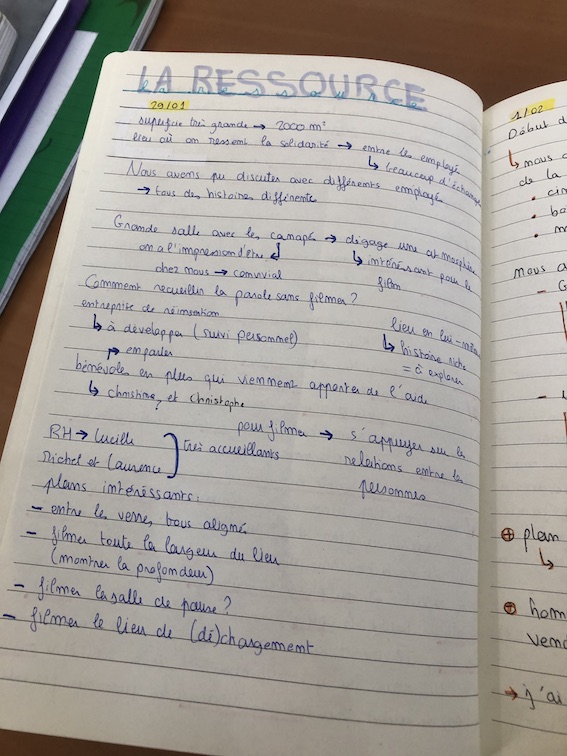 LA RESSOURCE
29/01
superficie très grande → 2000 m²
lieu où on ressent la solidarité → entre les employé
↳ beaucoup d'échange
Nous avons pu discuter avec différents employé
→ tous des histoires différente
Grande salle avec les canapé → dégage une atmosphère
on a l'impression d'être ↲ ↳ intéréssant pour le
chez nous → convivial film
Comment recueillir la parole sans filmer ?
entreprise de réinsertion
↳ à développer (suivi personnel)
en parler
lieu en lui-même
↳ histoire riche
= à explorer
bénévoles en plus qui viennent apporter de l'aide
↳ christine, et Christophe
RH → Lucille
Michel et Laurence } très accueillants
pour filmer → s'appuyer sur les
relations entre les
personnes
plans intéréssants :
- entre les verre, tous aligné
- filmer toute la largeur du lieu
(montrer la profondeur)
- filmer la salle de pause ?
- filmer le lieu de (dé)chargement
1/02
Début d
↳ nous a
de la
nous a
⊕ plan
⊕ hom
vend
→ j'ai